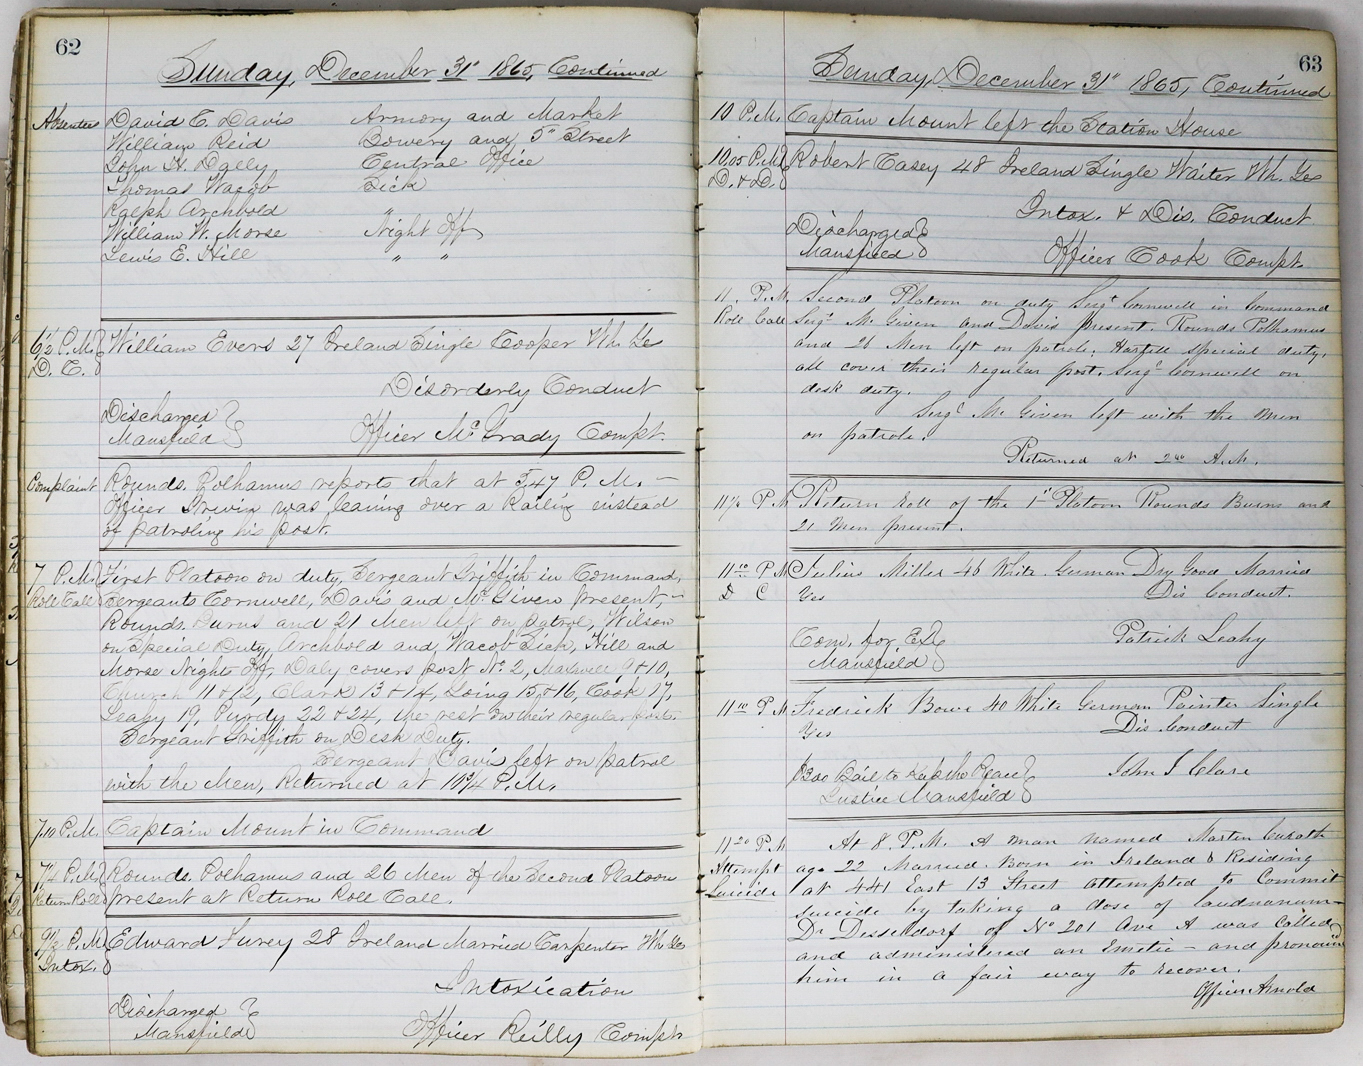 62
Sunday, December 31" 1865, Continued
Absentees David E. Davis Armory and Market
William Reid Bowery and 5" Street
John H. Dally Central Office
Thomas Wacob Sick
Ralph Archbold "
William W. Morse Night Off
Lewis E. Hill " "
6½ P.M. William Evers 27 Ireland Single Cooper Wh. Yes
D. C. Disorderly Conduct
Discharged
Mansfield Officer McGrady Compt.
Complaint Rounds. Polhamus reports that at 5.47 P. M. —
Officer was leaning over a Railing instead
of patroling his post.
7 P.M. First Platoon on duty, Sergeant Griffith in Command,
Roll Call Sergeants Cornwell, Davis and Mc Given present, —
Rounds. Burns and 21 Men left on patrol, Wilson
on Special Duty, Archbold and Wacob Sick, Hill and
Morse Night Off, Daly covers post No. 2, Maxwell 9 & 10,
Church 11 & 12, Clark 13 & 14, Loing 15 & 16, Cook 17,
Leahy 19, Purdy 22 & 24, the rest on their regular posts.
Sergeant Griffith on Desk Duty.
Sergeant Davis left on patrol
with the Men, Returned at 10¾ P.M.
7.10 P.M. Captain Mount in Command
7¼ P.M. Rounds. Polhamus and 26 Men of the Second Platoon
Return Roll present at Return Roll Call.
9½ P.M. Edward Furey 28 Ireland Married Carpenter Wh. Yes
Intox. Intoxication
Discharged
Mansfield Officer Reilly Compt.
63
Sunday, December 31" 1865, Continued
10 P.M. Captain Mount left the Station House
10.05 P.M. Robert Casey 48 Ireland Single Waiter Wh. Yes
D. & D. Intox. & Dis. Conduct
Discharged
Mansfield Officer Cook Compt.
11. P.M. Second Platoon on duty Sergt Cornwell in Command
Roll Call Sergt Mc Given and Davis present. Rounds Polhamus
and 26 Men left on patrole. Hartill special duty.
all cover their regular post. Sergt Cornwell on
desk duty.
Sergt Mc Given left with the men
on patrole.
Returned at 2 00 A.M.
11¼ P.M Return roll of the 1st Platoon Rounds Burns and
21 Men present.
11 10 P.M Julius Miller 46 White German Dry Good Married
D C Yes Dis Conduct.
Com. for Ex
Mansfield Patrick Leahy
11 10 P.M Fredrick Bowe 40 White German Painter Single
Yes Dis Conduct
$300 Bail to Keep the Peace John J Clare
Justice Mansfield
11 20 P.M At 8. P.M. A man named Martin
Attempt age 22 Married. Born in Ireland & Residing
Suicide at 441 East 13 Street attempted to Commit
suicide by taking a dose of laudnanum —
Dr Desseldorf of No 201 Ave A was Called
and administered an Emetic — and pronounced
him in a fair way to recover.
Officer Arnold